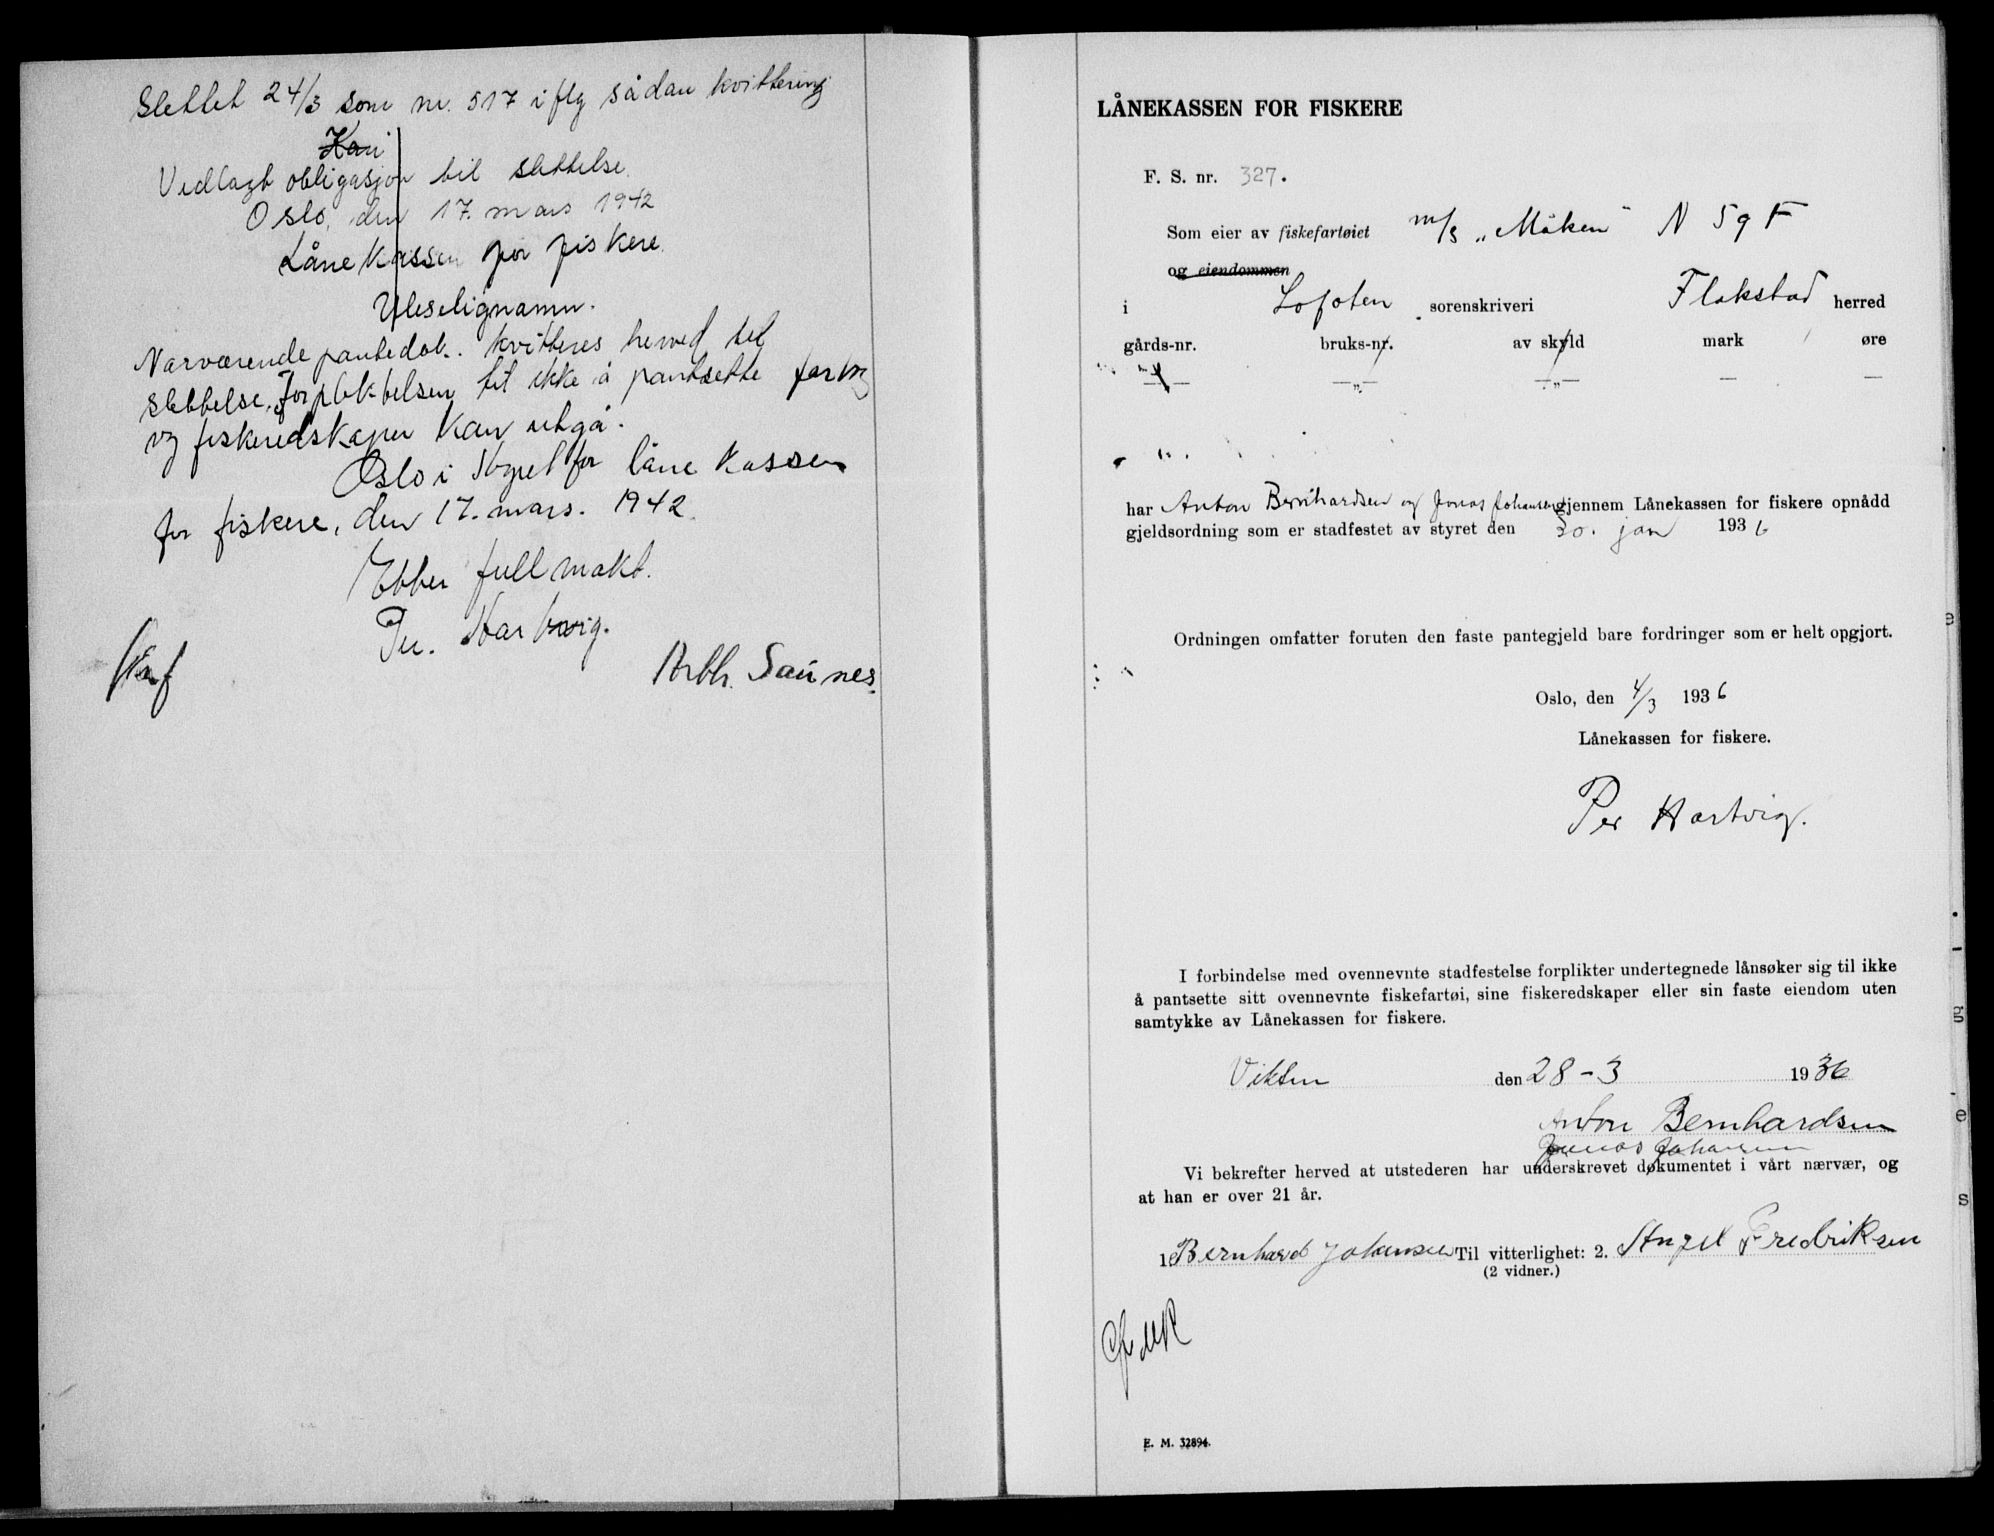 Slettet 24/3 som nr. 517 iflg sådan kvittering
Kan
Vedlagt obligasjon til slettelse.
Oslo, den 17. mars 1942
Lånekassen for fiskere.
Uleselig namn.
Nærværende pantedok. kvitteres herved til
slettelse. Forpliktelsen til ikke å pantsette fartøy
og fiskeredskaper kan utgå.
Oslo i Styret for lånekassen
for fiskere, den 17. mars. 1942.
Etter fullmakt.
Per. Hartwig.
Arth. Saunes.
LÅNEKASSEN FOR FISKERE
F. S. nr. 327.
Som eier av fiskefartøiet m/s „Måken" N 59 F
og eiendommen
i Lofoten sorenskriveri Flakstad herred
gårds-nr. bruks-nr. av skyld mark øre
— „ — — „ — — „ — — —
har Anton Bernhardsen og Jonas Johansen gjennem Lånekassen for fiskere opnådd
gjeldsordning som er stadfestet av styret den 20. jan 1936
Ordningen omfatter foruten den faste pantegjeld bare fordringer som er helt opgjort.
Oslo, den 4/3 1936
Lånekassen for fiskere.
Per Hartvig.
I forbindelse med ovennevnte stadfestelse forplikter undertegnede lånsøker sig til ikke
å pantsette sitt ovennevnte fiskefartøi, sine fiskeredskaper eller sin faste eiendom uten
samtykke av Lånekassen for fiskere.
Vikten den 28-3 1936
Anton Bernhardsen
Jonas Johansen
Vi bekrefter herved at utstederen har underskrevet dokumentet i vårt nærvær, og
at han er over 21 år.
1 Bernhard Johansen Til vitterlighet: 2. Fredriksen
(2 vidner.)
E. M. 32894.